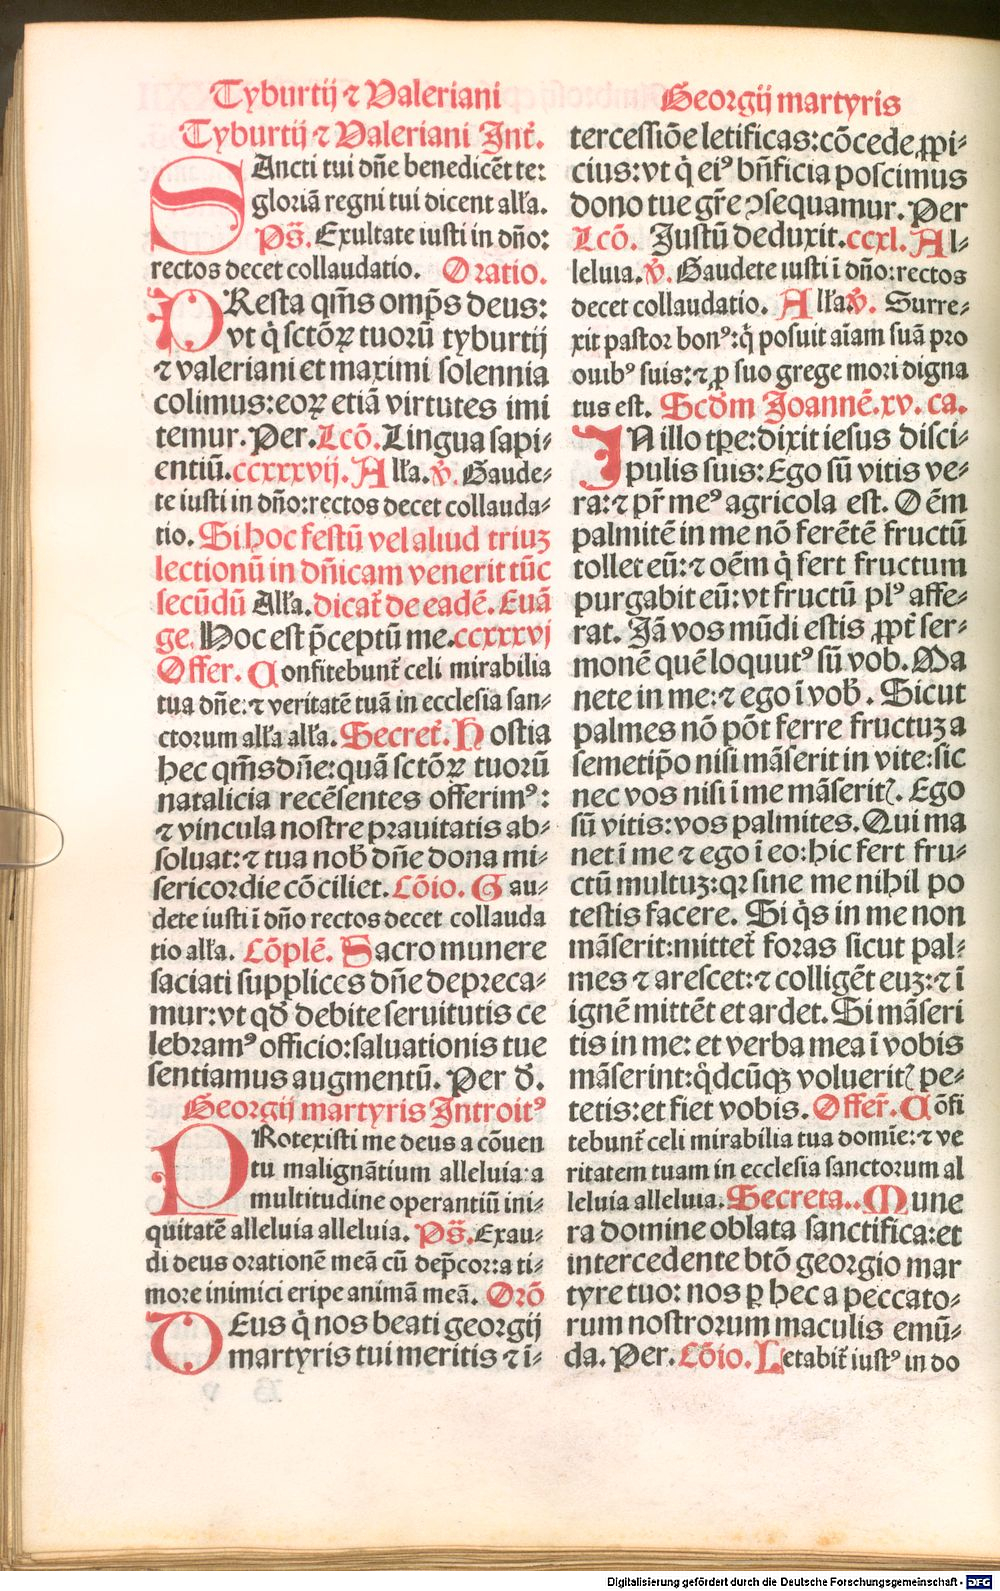 Tyburtij ⁊ Valeriani
Tyburtij ⁊ Valeriani Int̃.
SAncti tui dn̄e benedicēt te:
gloriā regni tui dicent all'a.
Ps̄. Exultate iusti in dn̄o:
rectos decet collaudatio. Oratio.
PResta qm̄s omp̄s deus:
vt q̇ sctōꝝ tuorū tyburtij
⁊ valeriani et maximi solennia
colimus: eoꝝ etiā virtutes imi
temur. Per. Lcō. Lingua sapi⸗
entiū. ccxxxvij. All'a. v̄. Gaude⸗
te iusti in dn̄o: rectos decet collauda⸗
tio. Si hoc festū vel aliud triuꝫ
lectionū in dn̄icam venerit tūc
secūdū All'a. dicat̃ de eadē. Euā
ge. Hoc est p̄ceptū me. ccxxxvj
Offer. Confitebunt̃ celi mirabilia
tua dn̄e: ⁊ veritatē tuā in ecclesia san⸗
ctorum all'a all'a. Secret̃. Hostia
hec qm̄s dn̄e: quā sctōꝝ tuorū
natalicia recēsentes offerimꝰ:
⁊ vincula nostre prauitatis ab⸗
soluat: ⁊ tua nob̄ dn̄e dona mi⸗
sericordie cōciliet. Cōio. Gau⸗
dete iusti ī dn̄o rectos decet collauda
tio all'a. Cōplē. Sacro munere
saciati supplices dn̄e depreca⸗
mur: vt qd̄ debite seruitutis ce
lebramꝰ officio: saluationis tue
sentiamus augmentū. Per d.
Georgij martyris Introitꝰ
PRotexisti me deus a cōuen
tu malignātium alleluia: a
multitudine operantiū ini⸗
quitatē alleluia alleluia. Ps̄. Exau⸗
di deus orationē meā cū dep̄cor: a ti⸗
more inimici eripe animā meā. Orō
DEus q̇ nos beati georgij
martyris tui meritis ⁊ i⸗
Georgij martyris
tercessiōe letificas: cōcede ꝓpi⸗
cius: vt q̇ eiꝰ bn̄ficia poscimus
dono tue gr̄e ꝯsequamur. Per
Lcō. Justū deduxit. ccxl. Al⸗
leluia. v̄. Gaudete iusti ī dn̄o: rectos
decet collaudatio. All'a. v̄. Surre⸗
xit pastor bonꝰ: q̇ posuit aīam suā pro
ouibꝰ suis: ⁊ ꝓ suo grege mori digna
tus est. Scd̄m Joannē. xv. ca.
IN illo tp̄e: dixit iesus disci⸗
pulis suis: Ego sū vitis ve⸗
ra: ⁊ pr̄ meꝰ agricola est. Oēm
palmitē in me nō ferētē fructū
tollet eū: ⁊ oēm q̇ fert fructum
purgabit eū: vt fructū plꝰ affe⸗
rat. Jā vos mūdi estis ꝓpt̃ ser⸗
monē quē loquutꝰ sū vob. Ma
nete in me: ⁊ ego ī vob̄. Sicut
palmes nō pōt ferre fructuꝫ a
semetip̄o nisi māserit in vite: sic
nec vos nisi ī me māserit⁊. Ego
sū vitis: vos palmites. Qui ma
net ī me ⁊ ego ī eo: hic fert fru⸗
ctū multuꝫ: qꝛ sine me nihil po
testis facere. Si q̇s in me non
māserit: mittet̃ foras sicut pal⸗
mes ⁊ arescet: ⁊ colligēt euꝫ: ⁊ ī
ignē mittēt et ardet. Si māseri
tis in me: et verba mea ī vobis
māserint: q̇dcūqꝫ voluerit⁊ pe⸗
tetis: et fiet vobis. Offer̃. Cōfi
tebunt̃ celi mirabilia tua domīe: ⁊ ve
ritatem tuam in ecclesia sanctorum al
leluia alleluia. Secreta.. Mune
ra domine oblata sanctifica: et
intercedente btō georgio mar
tyre tuo: nos ꝑ hec a peccato⸗
rum nostrorum maculis emū⸗
da. Per. Cōio. Letabit̃ iustꝰ in do
Digitalisierung gefördert durch die Deutsche Forschungsgemeinschaft - DFG